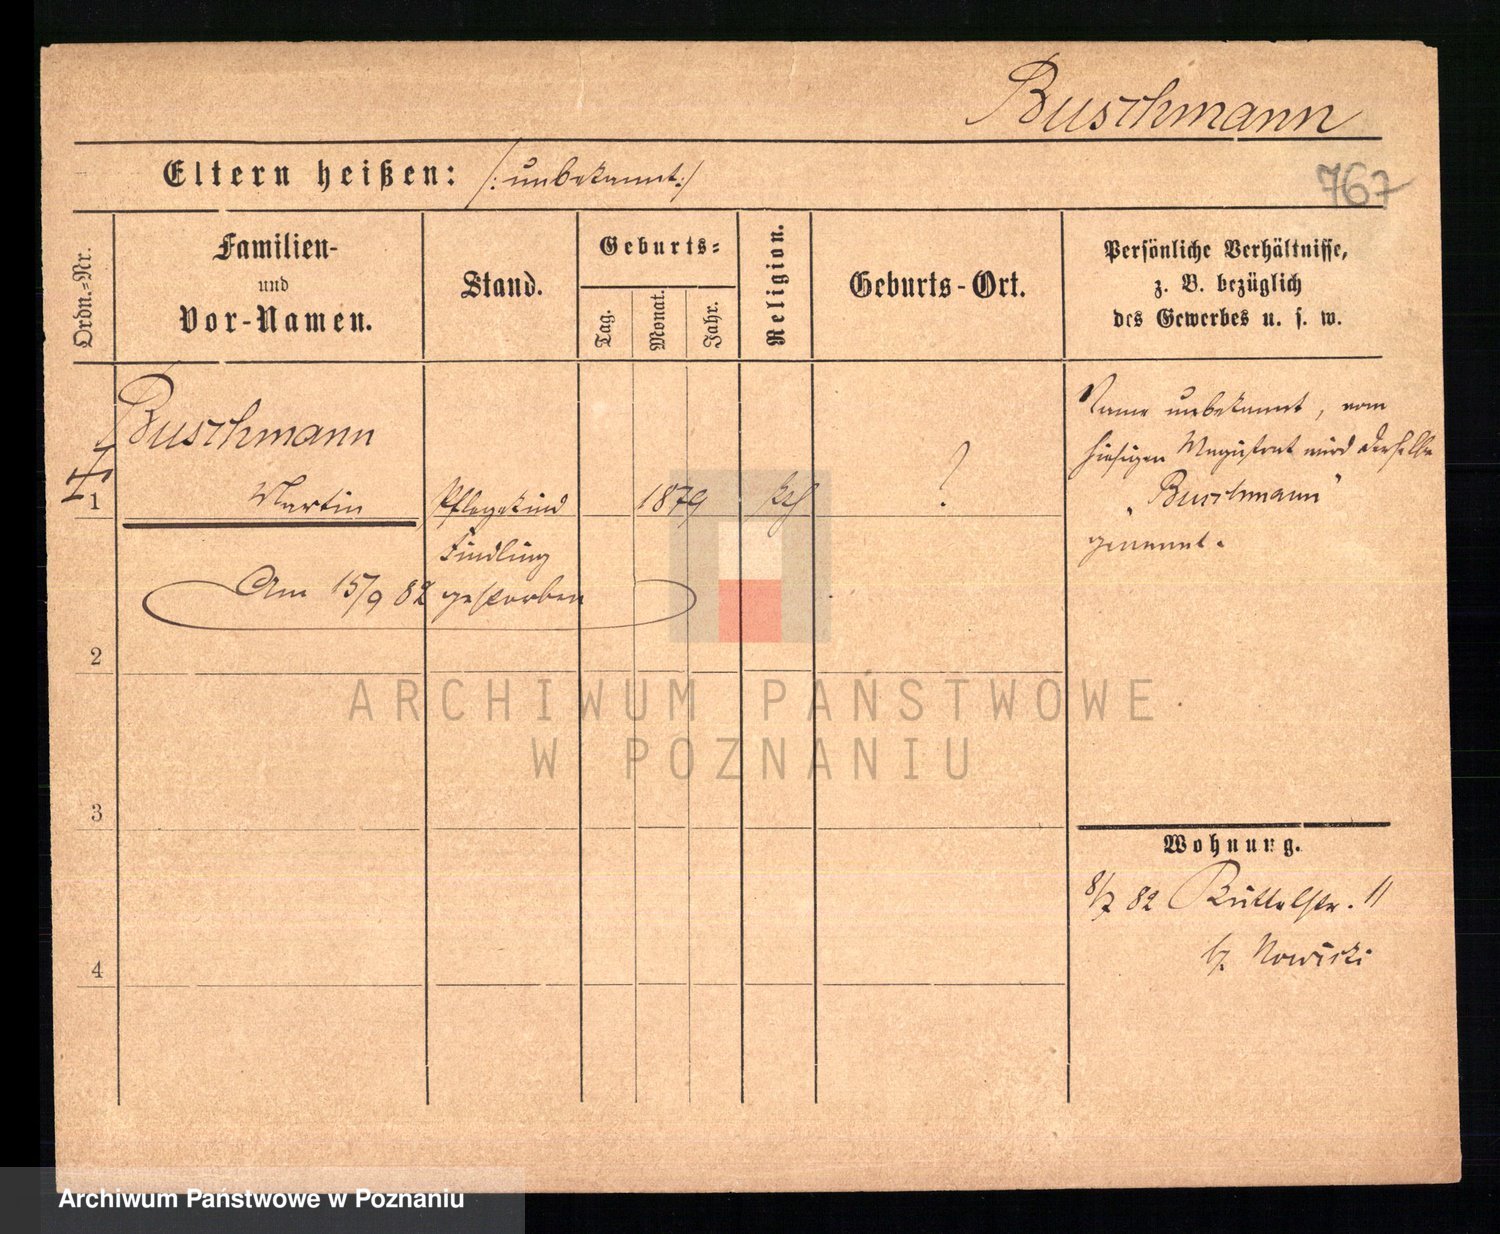 Buschmann
Eltern heißen: /: unbekannt :/
767
Ordn.=Nr.
Familien-
und
Vor-Namen.
Stand.
Geburts=
Tag.
Monat.
Jahr.
Religion.
Geburts-Ort.
Persönliche Verhältnisse,
z. B. bezüglich
des Gewerbes u. s. w.
Buschmann
1 Martin Pflegekind 1879 kth ?
Findling
Am 15/9 82 gestorben
Name unbekannt, vom
hiesigen Magistrat wird derselbe
„Buschmann"
genannt.
2
ARCHIWUM PAŃSTWOWE
W POZNANIU
3
Wohnung.
8/7 82 Büttelstr. 11
b/. Nowicki
4
Archiwum Państwowe w Poznaniu